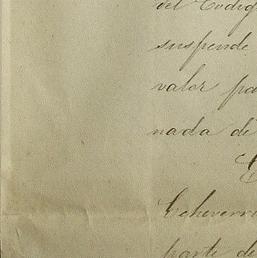 del Codig
suspende
valor pa
nada de
Echeverri
parte de